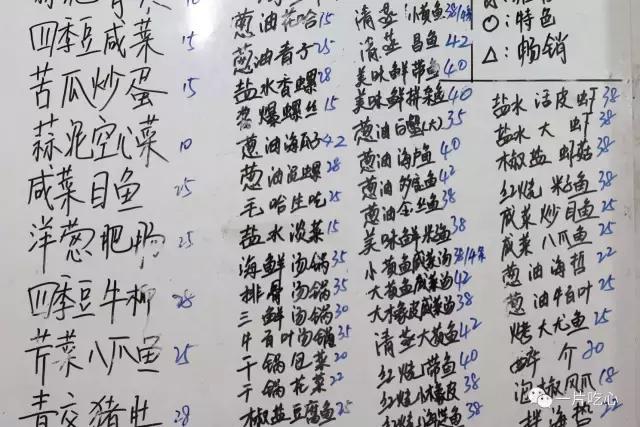 四季豆咸菜 15
苦瓜炒蛋 15
蒜泥空心菜 10
咸菜目鱼 25
洋葱肥肠 25
四季豆牛柳 28
芹菜八爪鱼 25
青交猪肚 28
葱油花哈 15
葱油香子 25
盐水香螺 28
酱爆螺丝 15
葱油海瓜子 42
葱油泥螺 28
毛哈生吃 25
盐水淡菜 15
海鲜汤锅 35
排骨汤锅 35
三鲜汤锅 30
牛百叶汤锅 35
干锅包菜 20
干锅花菜 22
椒盐豆腐鱼 25
清蒸小黄鱼 38/4条
清蒸昌鱼 42
美味鲜带鱼 40
美味鲜排采鱼 40
葱油白蟹(大) 35
葱油海卢鱼 40
葱油 鱼 42
葱油金丝鱼 38
美味鲜米鱼 38
小黄鱼咸菜汤 38/4条
大黄鱼咸菜汤 42
大橡皮咸菜汤 38
清蒸大黄鱼 42
红烧带鱼 40
红烧小橡皮 38
红烧小海 鱼 38
○:特色
△:畅销
盐水活皮虾 38
盐水大虾 38
椒盐虾菇 38
红烧米鱼 38
咸菜炒目鱼 25
咸菜八爪鱼 25
葱油海哲 22
葱油牛百叶 25
烤大尤鱼 25
醉介 20
泡椒凤爪 18
拌海哲 22
一片吃心